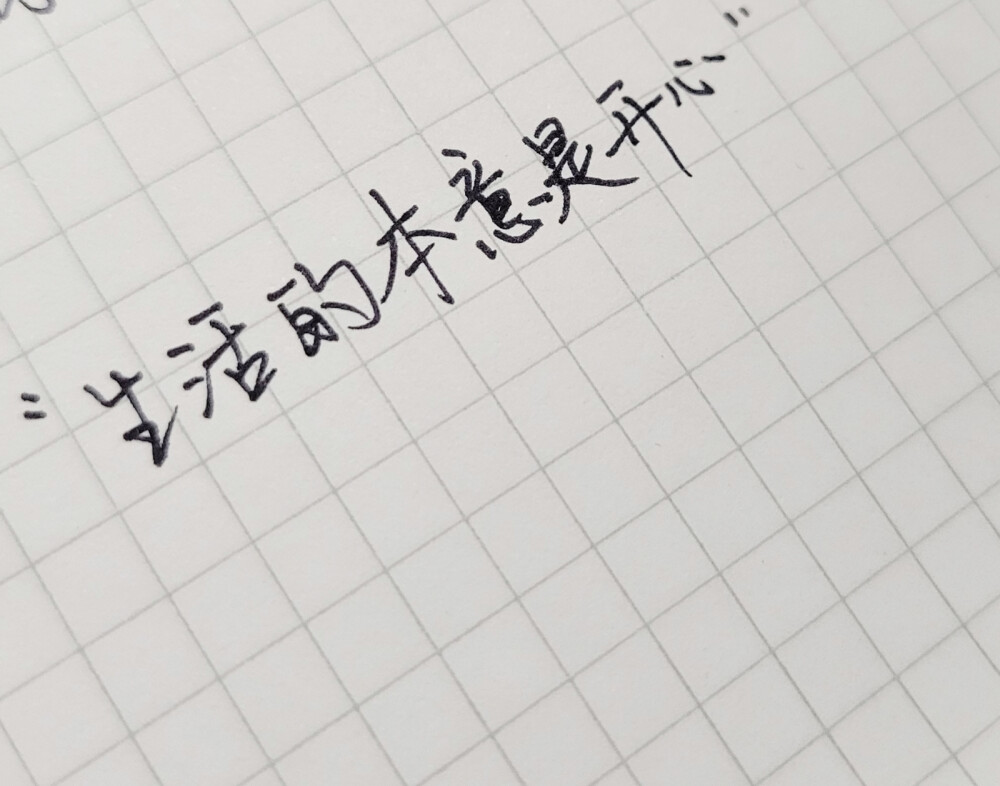 "生活的本意是开心"